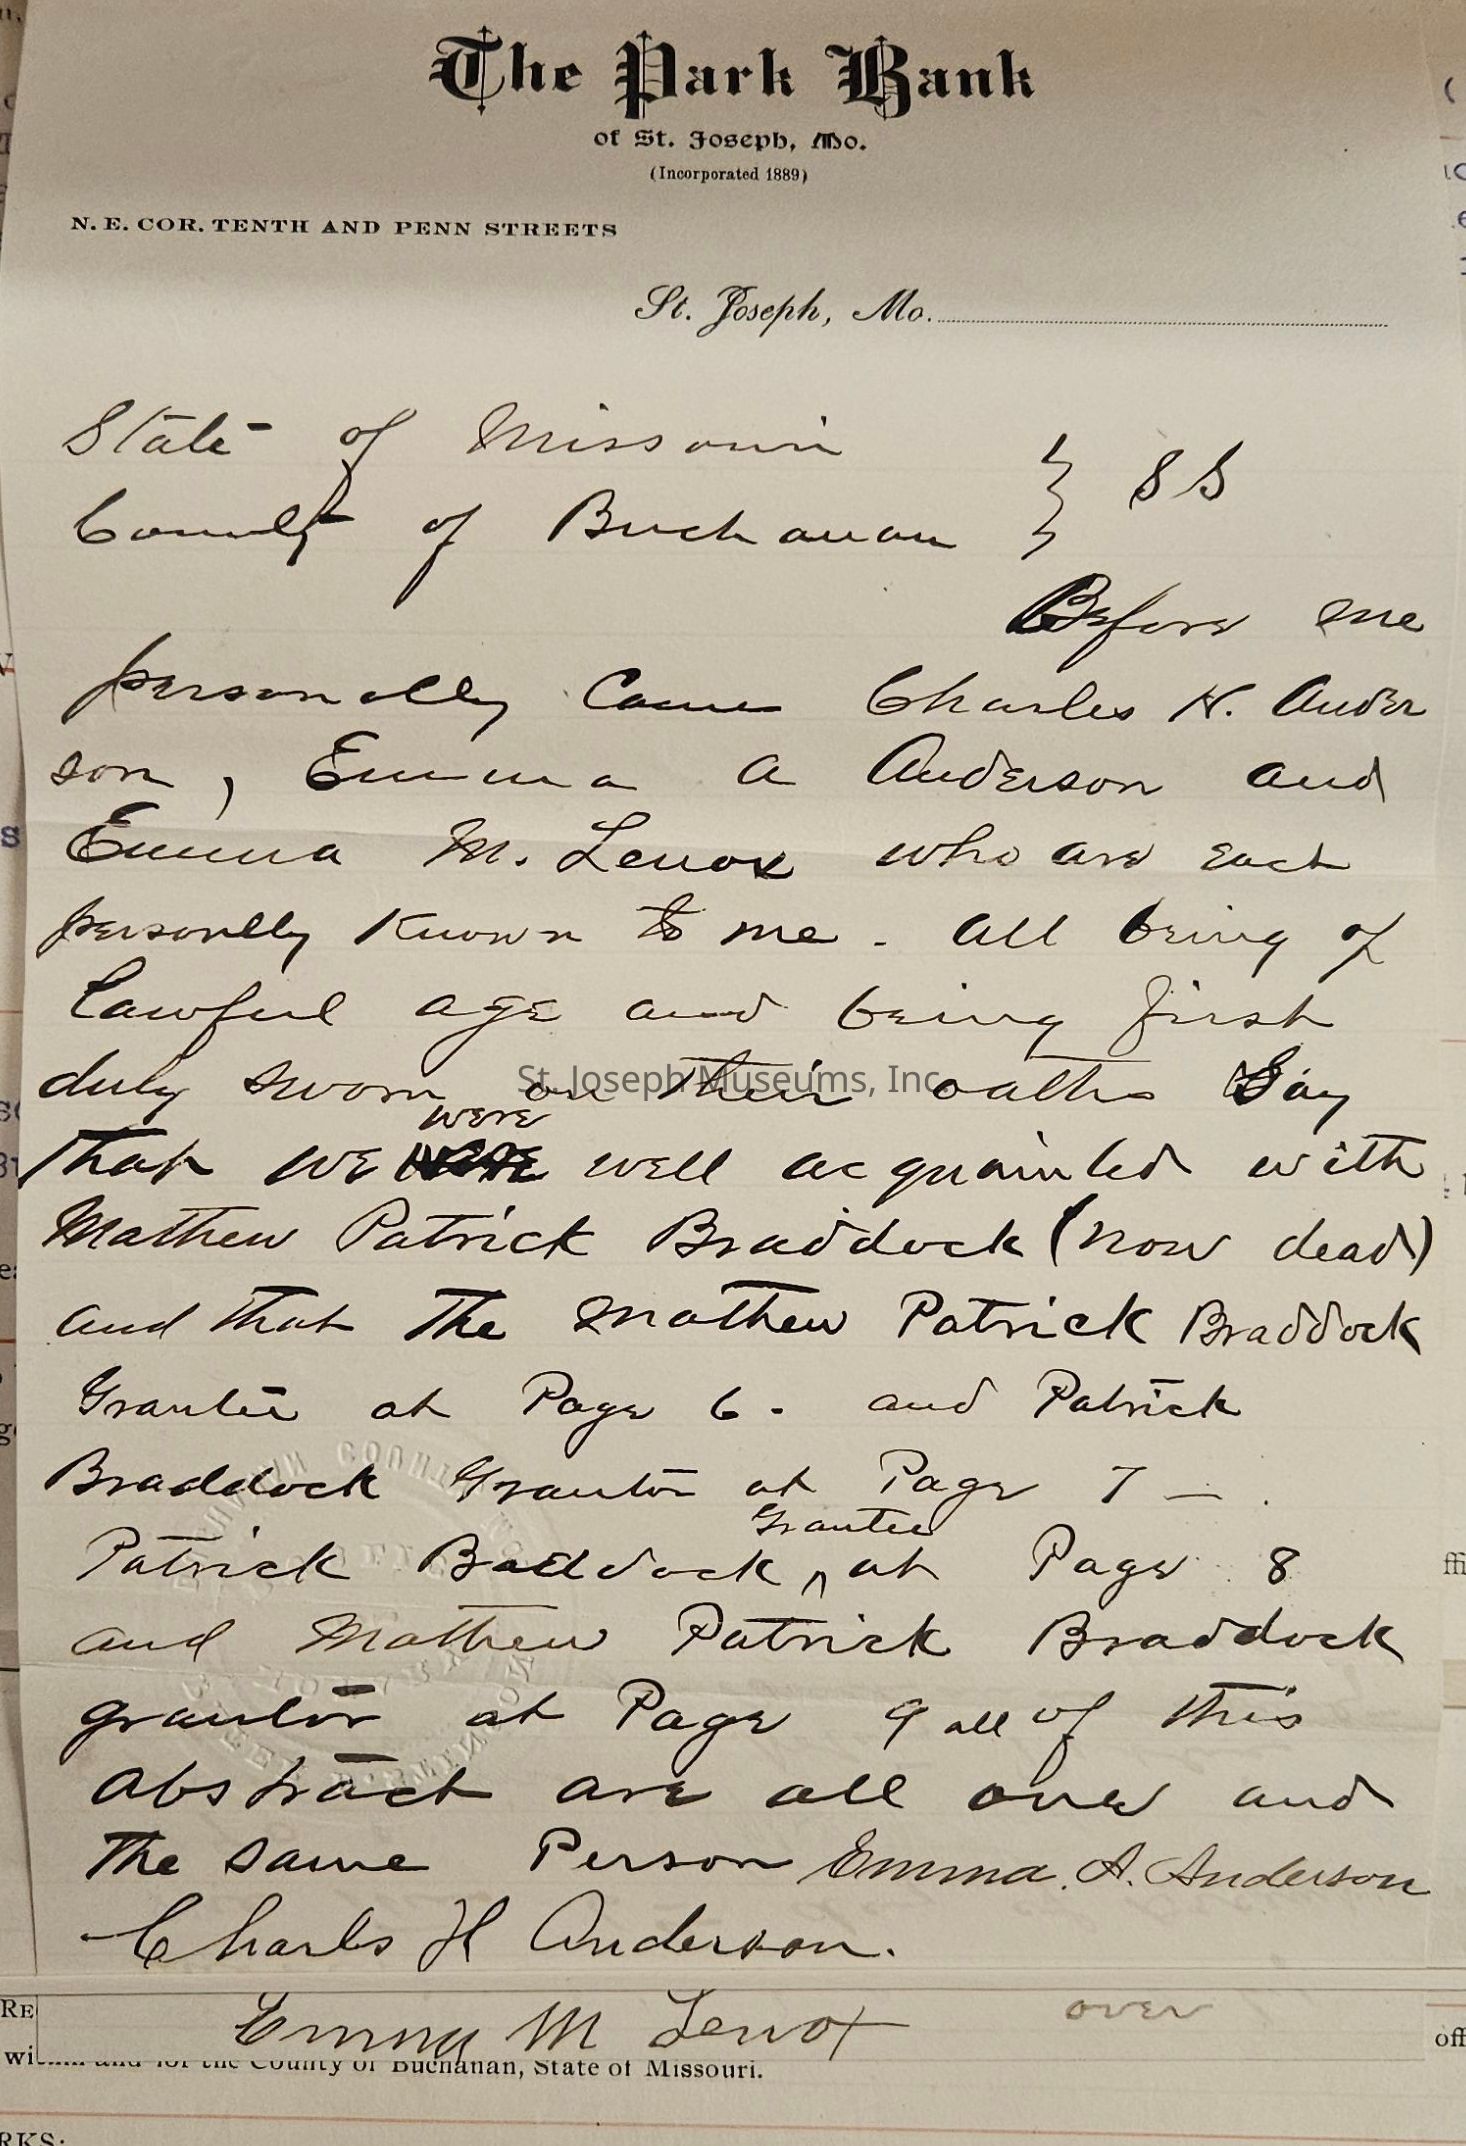 The Park Bank
of St. Joseph, Mo.
(Incorporated 1889)
N. E. COR. TENTH AND PENN STREETS
St. Joseph, Mo.
State of Missouri } SS
County of Buchanan
Before me
personally came Charles H. Ander
son, Emma A Anderson and
Emma M. Lenox who are each
personlly known to me. all being of
lawful age and being first
duly sworn on their oaths Say
St. Joseph Museums, Inc.
were
that we well acquainted with
Mathew Patrick Braddock (now dead)
and that the Mathew Patrick Braddock
Grantee at Page 6. and Patrick
Braddock Grantor at Page 7 — .
Grantee
Patrick Baddock ^ at Page 8
and Mathew Patrick Braddock
grantor at Page 9 all of this
abstract are all one and
the same Person Emma. A. Anderson
Charles H Anderson.
Emma M Lenox over
within and for the County of Buchanan, State of Missouri.
RKS: